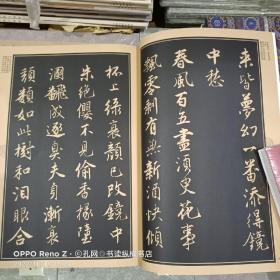 車皆夢幻一番添得鏡
中愁
春風百五盡須臾花事
飄零剩有無新酒快傾
杯上綠衰顏已改鏡中
朱絕纓不見偷香掾墮
溷翻成逐臭夫天漸衰
頹類如此樹和淚眼合
OPPO Reno Z | ©孔网@书渎纵横书店